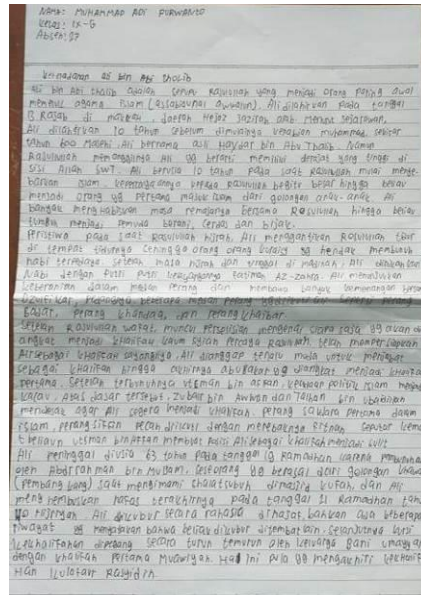 NAMA: MUHAMMAD ADI PURWANTO
Kelas: IX-G
Absen: 27
Ali bin Abi Thalib adalah sepupu Rasulullah yang menjadi orang paling awal
memeluk agama Islam (assabiqunal awwalun). Ali dilahirkan pada tanggal
13 Rajab di makkah, daerah Hejaz Jazirah arab. Menurut sejarawan,
Ali dilahirkan 10 tahun sebelum dimulainya kenabian muhammad sekitar
tahun 600 Masehi. Ali bernama asli Haydar bin Abu Thalib. Namun
Rasulullah memanggilnya Ali yg berarti memiliki derajat yang tinggi di
sisi Allah SWT. Ali berusia 10 tahun pada saat Rasulullah mulai menye-
barkan Islam. kepercayaannya kepada Rasulullah begitu besar hingga beliau
menjadi orang yg pertama masuk islam dari golongan anak-anak. Ali
banyak menghabiskan masa remajanya bersama Rasulullah hingga beliau
tumbuh menjadi pemuda berani, cerdas dan bijak.
Peristiwa pada saat Rasulullah hijrah, Ali menggantikan Rasulullah tidur
di tempat tidurnya sehingga orang orang kuraisy yg hendak membunuh
nabi terpedaya. setelah masa hijrah dan tinggal di madinah, Ali dinikahkan
Nabi dengan putri kesayangannya fatimah Az-zahra. Ali menunjukkan
keberanian dalam medan perang dan membawa banyak kemenangan
beberapa medan perang seperti perang
Badar, perang khandaq, dan perang khaibar.
Setelah Rasulullah wafat, muncul perselisihan mengenai siapa yg akan di
angkat menjadi khalifah. kaum syiah percaya Rasulullah telah mempersiapkan
Ali sebagai khalifah Ali dianggap terlalu muda untuk menjabat
sebagai khalifah hingga akhirnya abu bakar yg diangkat menjadi khalifah
pertama. Setelah terbunuhnya utsman bin affan, keadaan politik islam menjadi
kacau. Atas dasar tersebut, zubair bin Awwam dan Talhah bin ubaidillah
mendesak agar Ali segera menjadi khalifah. perang saudara pertama dalam
islam, perang siffin pecah diikuti dengan merebaknya fitnah seputar kema
t beliau utsman bin Affan membuat posisi Ali sebagai khalifah menjadi sulit
Ali meninggal diusia 63 tahun pada tanggal 19 Ramadhan karena
oleh Abdrrahman bin Muljam. seseorang yg berasal dari golongan khawa
(pembangkang) saat mengimami shalat subuh dimasjid kufah, dan Ali
menghembuskan nafas terakhirnya pada tanggal 21 Ramadhan tahun
40 Hijriyah. Ali dikubur secara rahasia di Najaf, bahkan ada beberapa
riwayat yg menyatakan bahwa beliau dikubur ditempat lain. selanjutnya kursi
kekhalifahan dipegang secara turun temurun oleh keluarga Bani umayyah
dengan khalifah pertama Muawiyah. Hal ini pula yg mengakhiri kekhalifa
Han kulafaur Rasyidin.